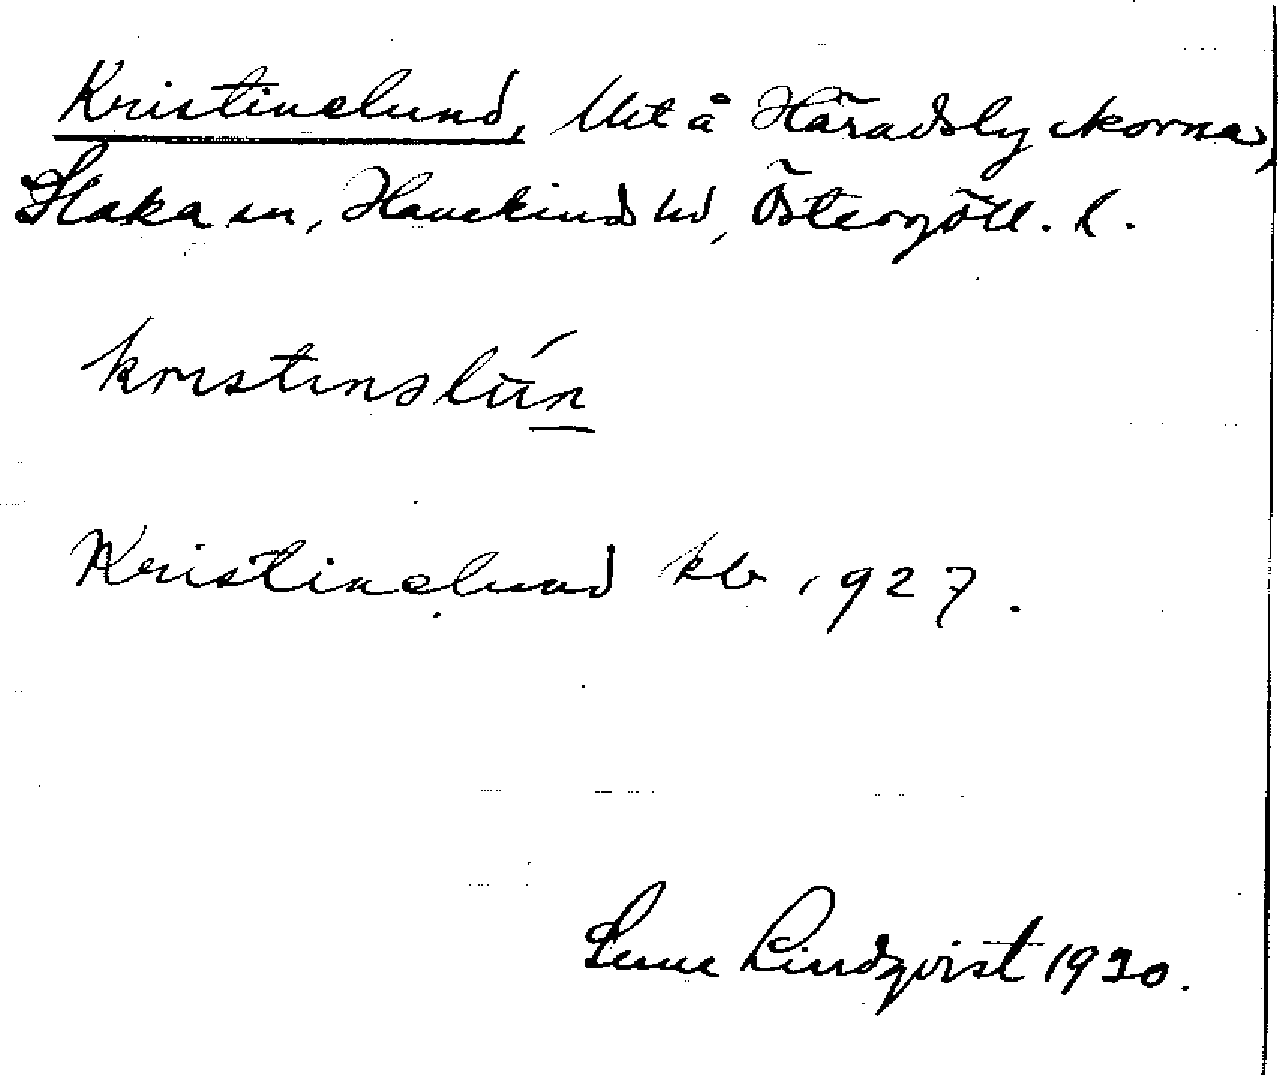 Kristinelund, lht å Häradslyckorna,
Slaka sn, Hanekinds hd, Östergötl. l.
kristinəlún
Kristinelund kb 1927.
Sune Lindqvist 1930.